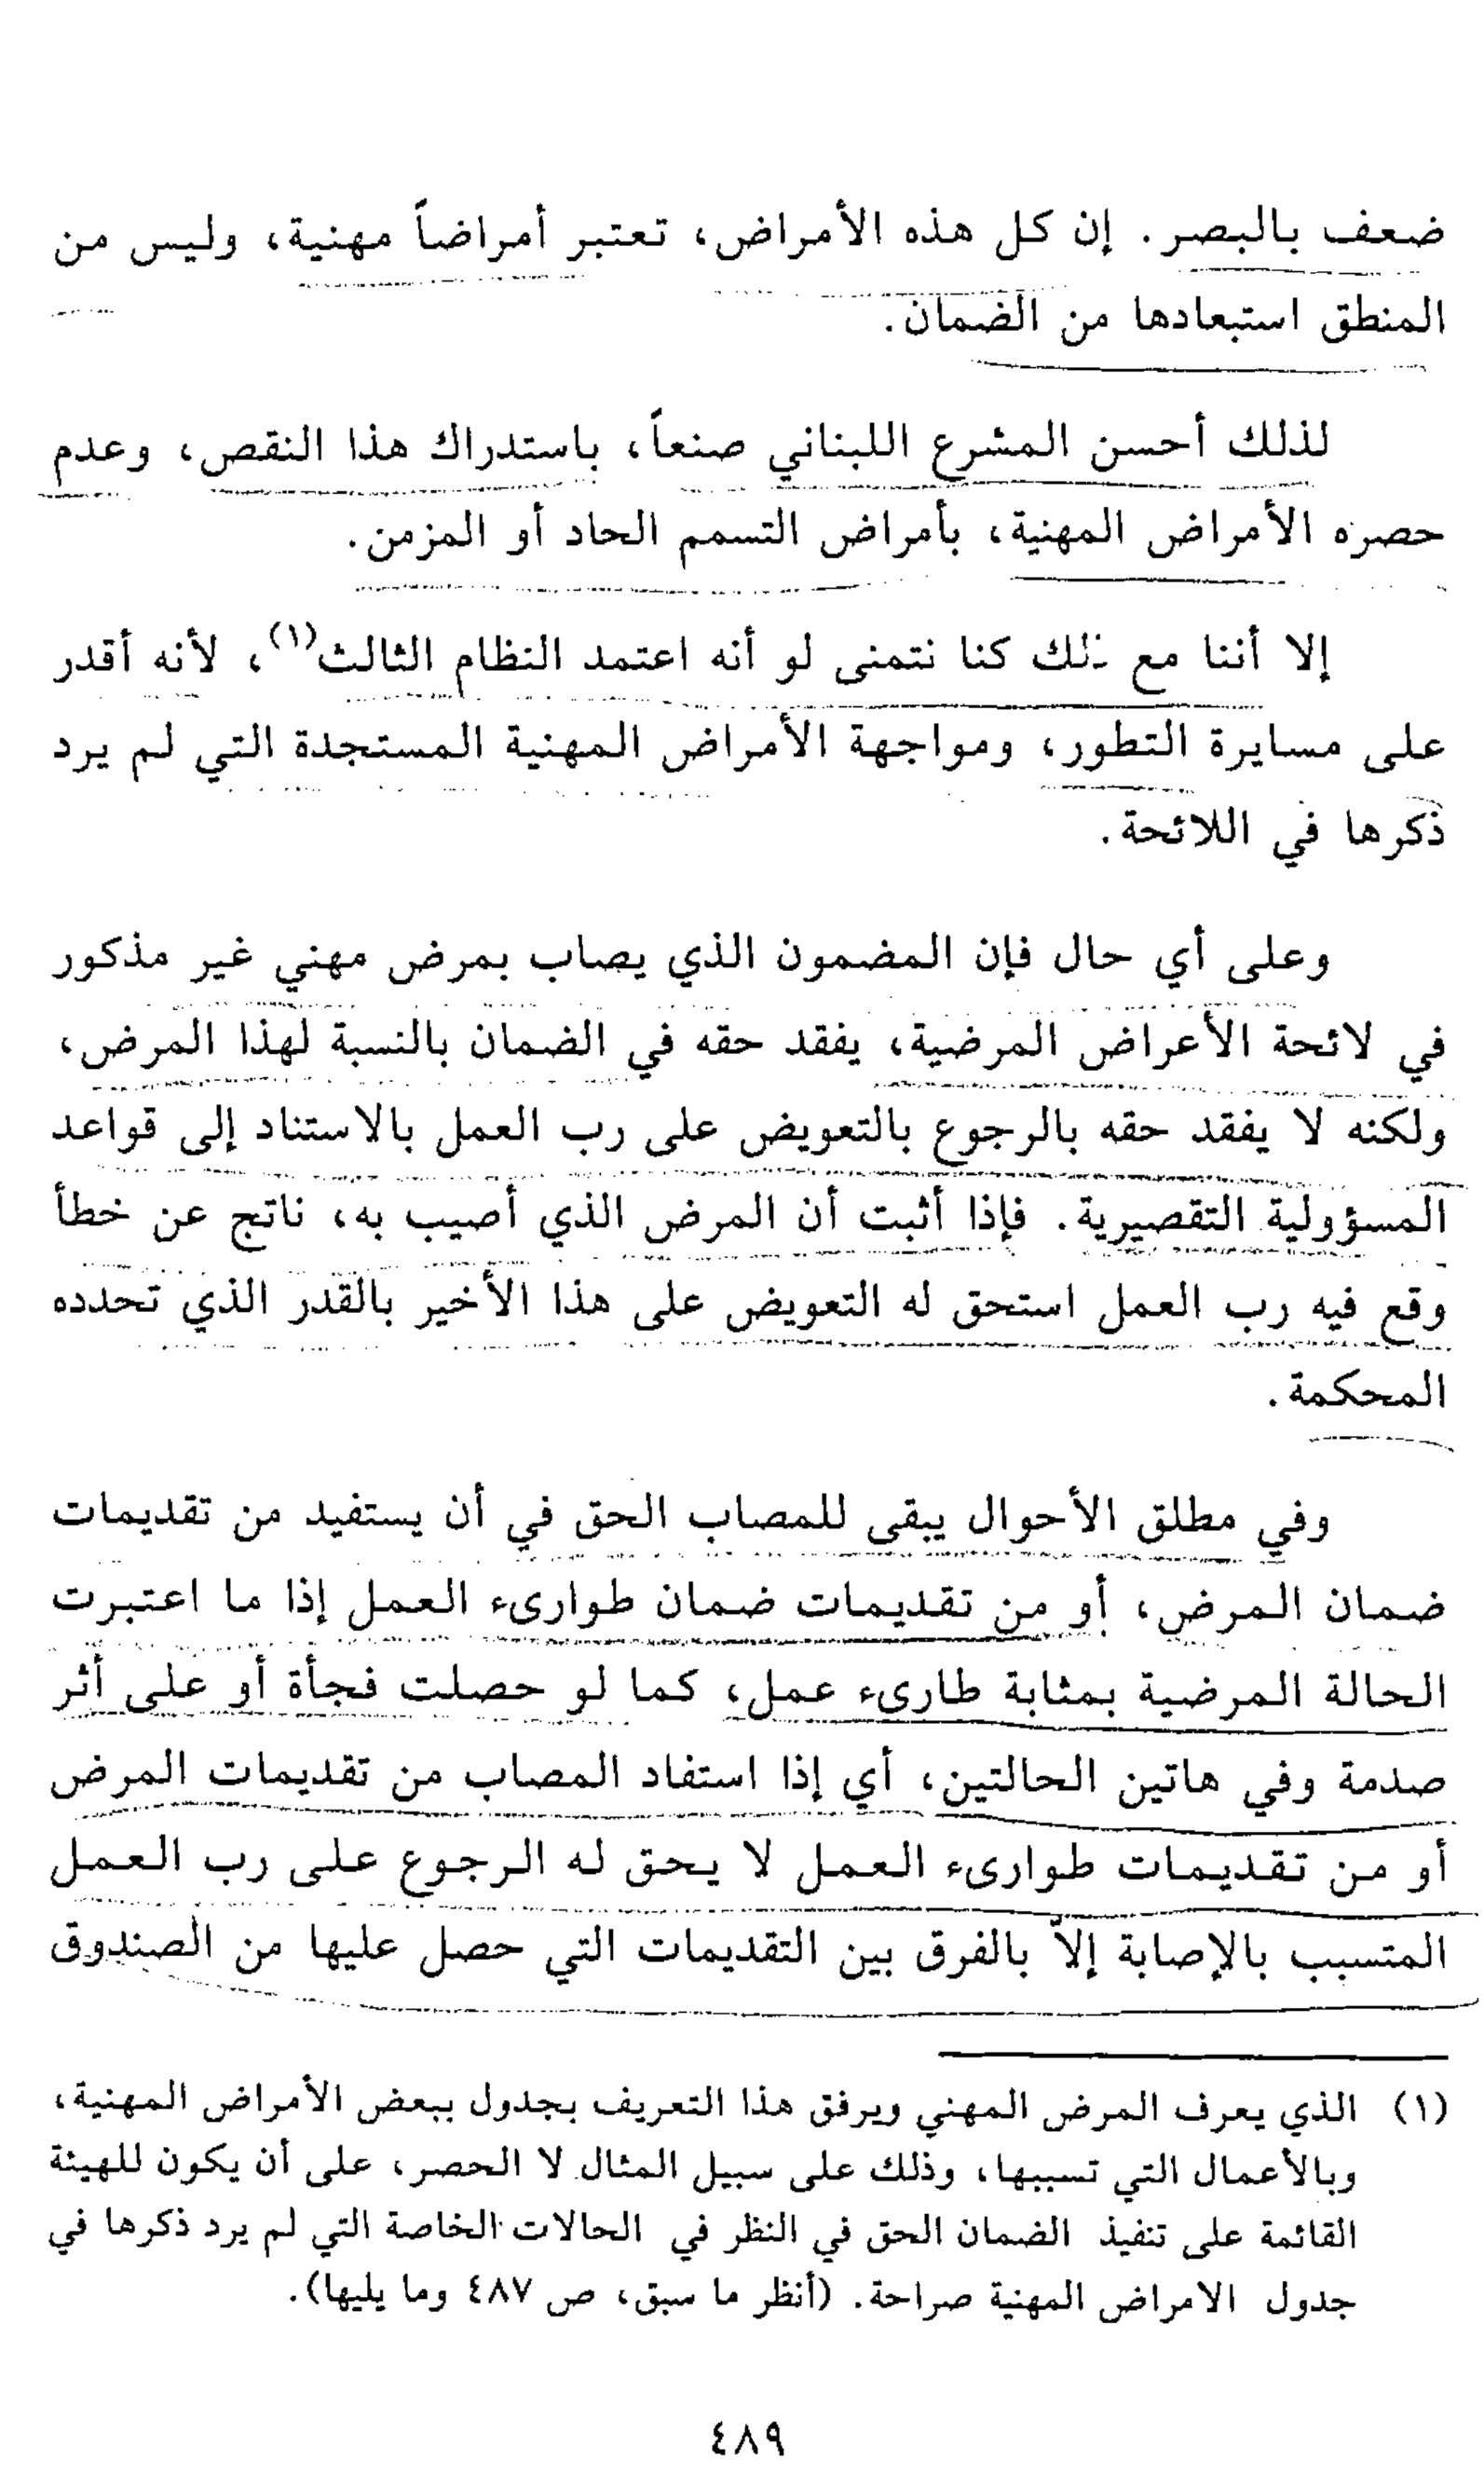 ضعف بالبصر. إن كل هذه الأمراض، تعتبر أمراضاً مهنية، وليس من
المنطق استبعادها من الضمان.
لذلك أحسن المشرع اللبناني صنعاً، باستدراك هذا النقص، وعدم
حصره الأمراض المهنية، بأمراض التسمم الحاد أو المزمن.
إلا أننا مع ذلك كنا نتمنى لو أنه اعتمد النظام الثالث(١)، لأنه أقدر
على مسايرة التطور، ومواجهة الأمراض المهنية المستجدة التي لم يرد
ذكرها في اللائحة.
وعلى أي حال فإن المضمون الذي يصاب بمرض مهني غير مذكور
في لائحة الأعراض المرضية، يفقد حقه في الضمان بالنسبة لهذا المرض،
ولكنه لا يفقد حقه بالرجوع بالتعويض على رب العمل بالاستناد إلى قواعد
المسؤولية التقصيرية. فإذا أثبت أن المرض الذي أصيب به، ناتج عن خطأ
وقع فيه رب العمل استحق له التعويض على هذا الأخير بالقدر الذي تحدده
المحكمة.
وفي مطلق الأحوال يبقى للمصاب الحق في أن يستفيد من تقديمات
ضمان المرض، أو من تقديمات ضمان طوارىء العمل إذا ما اعتبرت
الحالة المرضية بمثابة طارىء عمل، كما لو حصلت فجأة أو على أثر
صدمة وفي هاتين الحالتين، أي إذا استفاد المصاب من تقديمات المرض
أو من تقديمات طوارىء العمل لا يحق له الرجوع على رب العمل
المتسبب بالإصابة إلاّ بالفرق بين التقديمات التي حصل عليها من الصندوق
(١) الذي يعرف المرض المهني ويرفق هذا التعريف بجدول ببعض الأمراض المهنية،
وبالأعمال التي تسببها، وذلك على سبيل المثال لا الحصر، على أن يكون للهيئة
القائمة على تنفيذ الضمان الحق في النظر في الحالات الخاصة التي لم يرد ذكرها في
جدول الامراض المهنية صراحة. (أنظر ما سبق، ص ٤٨٧ وما يليها).
٤٨٩